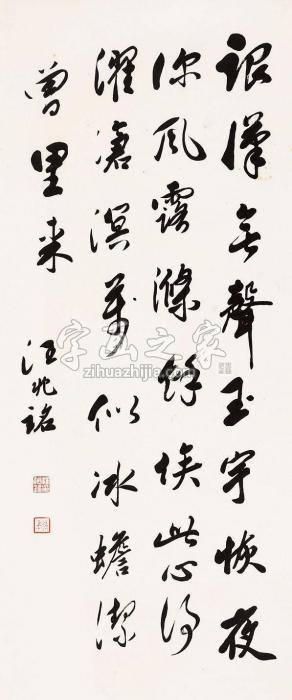 銀漢無聲玉宇恢夜
深風露滌餘埃此心得
濯滄溟萬似冰蟾潔
曾里來
汪兆銘
字画之家
zihuazhijia.com